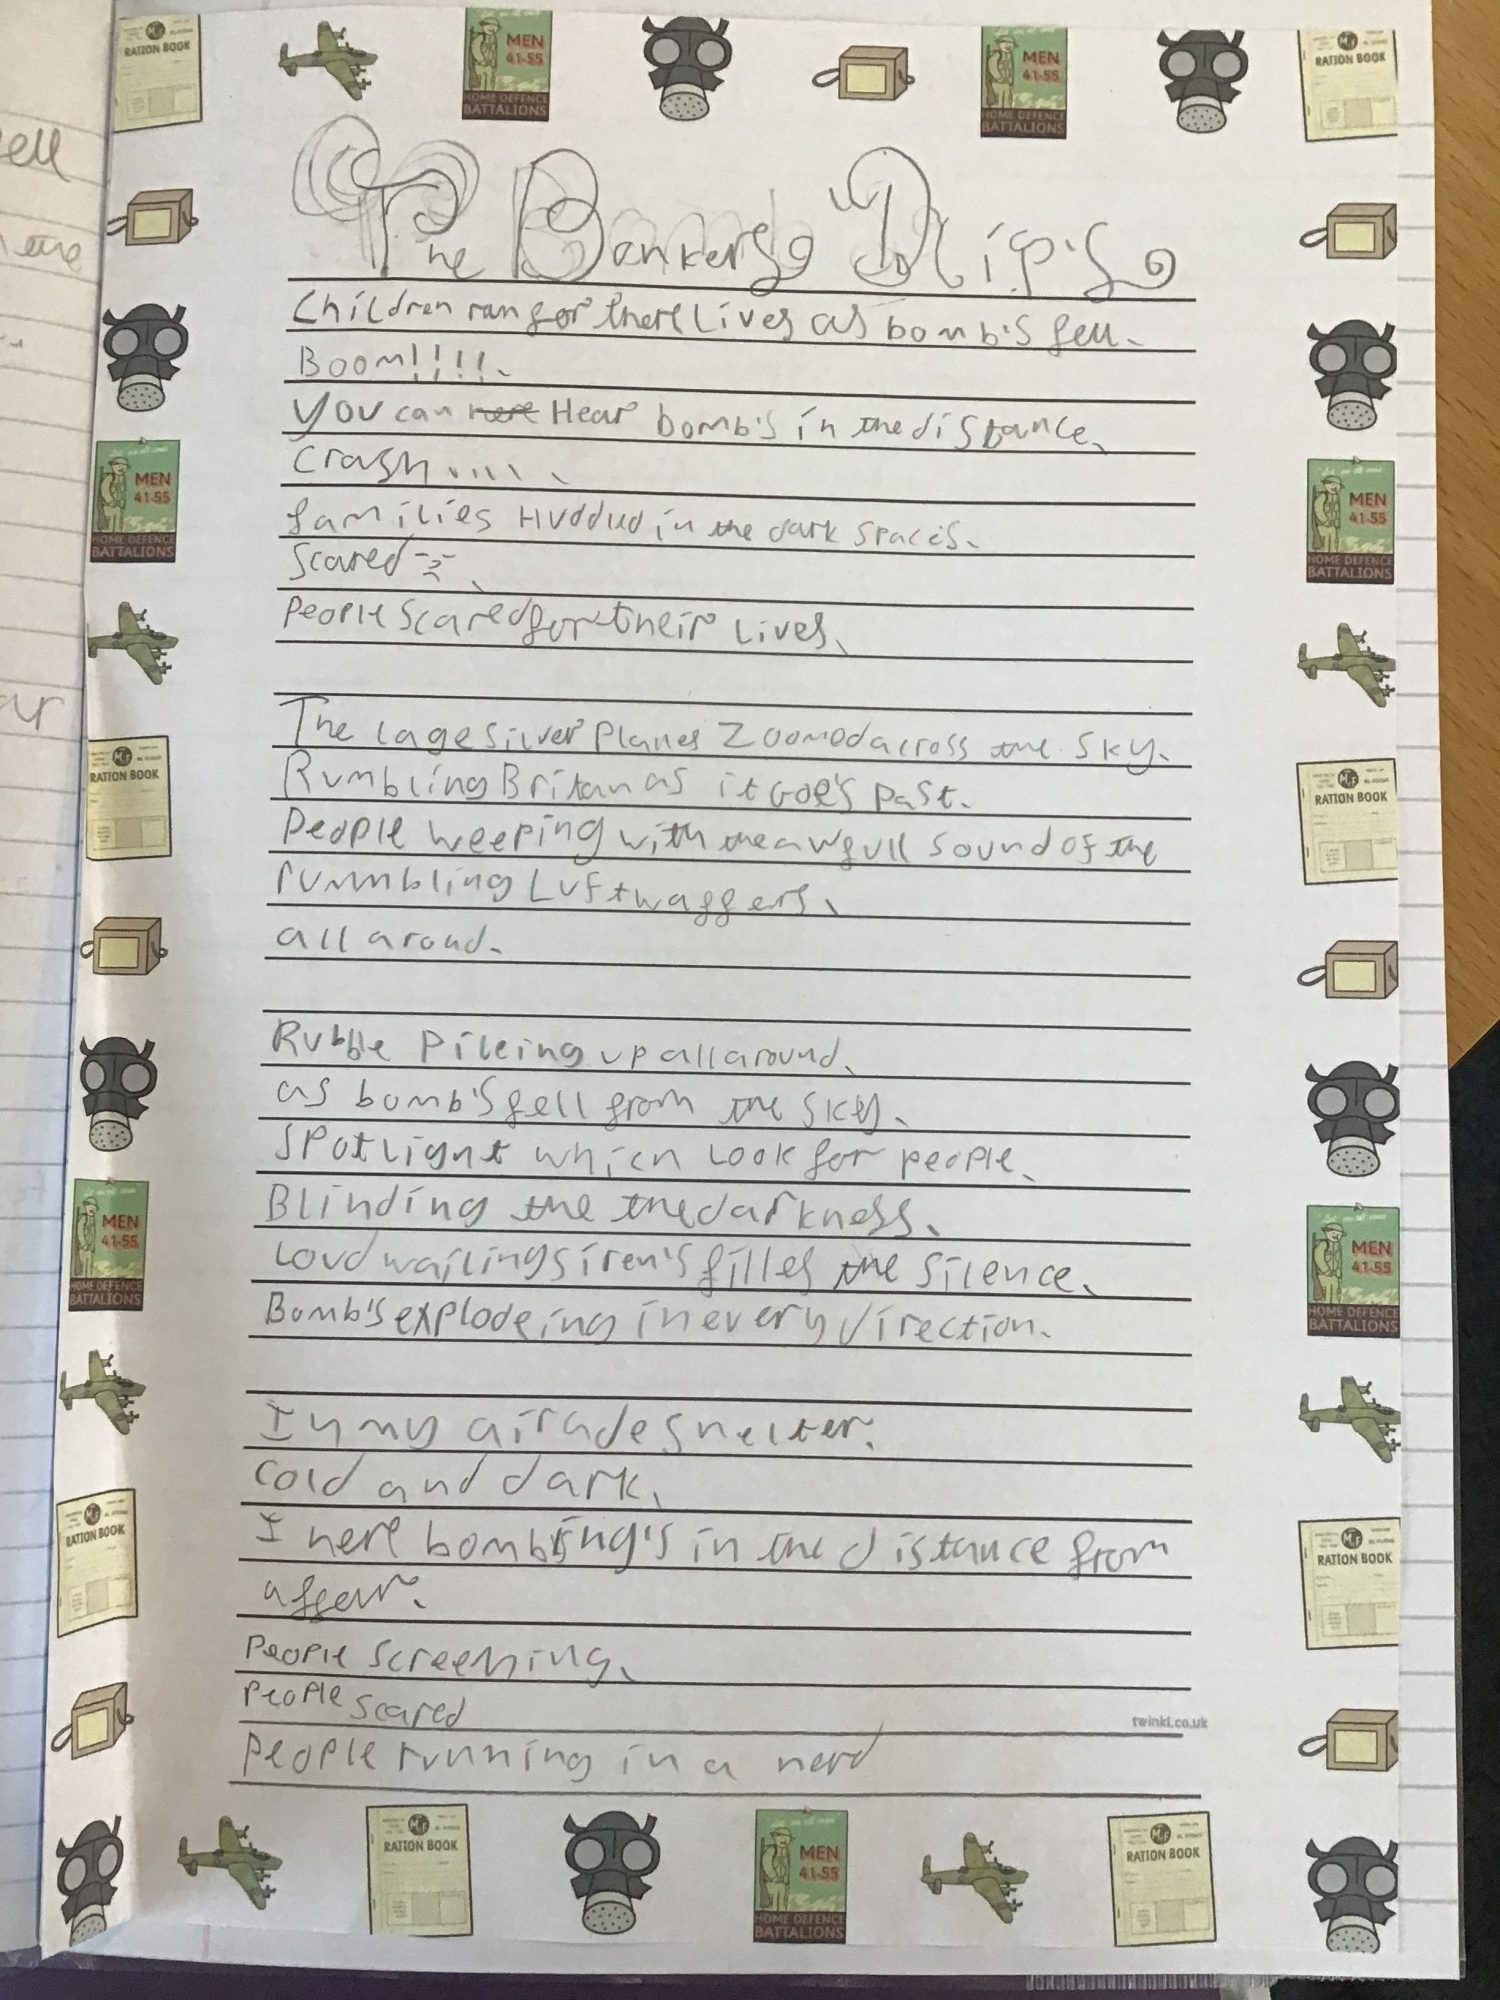 RATION BOOK
MEN
41-55
HOME DEFENCE
BATTALIONS
MEN
41-55
HOME DEFENCE
BATTALIONS
RATION BOOK
The Bonkers Drip's
Children ran for there lives as bomb's fell.
Boom!!!!.
You can Hear bomb's in the distance.
Crash.....
families Huddud in the dark spaces.
Scared
People scared for their lives.
The lage silver Planes Zoomod across the sky.
Rumbling Britan as it Goe's past.
People weeping with the awfull sound of the
rummbling Luftwaffers.
all aroud.
Rubble Pileing up all around.
as bomb's fell from the sky.
Spotlight which look for people.
Blinding the the darkness.
Loud wailing siren's filles the silence.
Bomb's explodeing in every direction.
In my airade shelter.
cold and dark.
I here bombing's in the distance from
affear.
People screeming.
People scared
People running in a herd
twinkl.co.uk
MEN
41-55
HOME DEFENCE
BATTALIONS
RATION BOOK
MEN
41-55
HOME DEFENCE
BATTALIONS
RATION BOOK
MEN
41-55
HOME DEFENCE
BATTALIONS
RATION BOOK
MEN
41-55
HOME DEFENCE
BATTALIONS
RATION BOOK
RATION BOOK
MEN
41-55
HOME DEFENCE
BATTALIONS
RATION BOOK